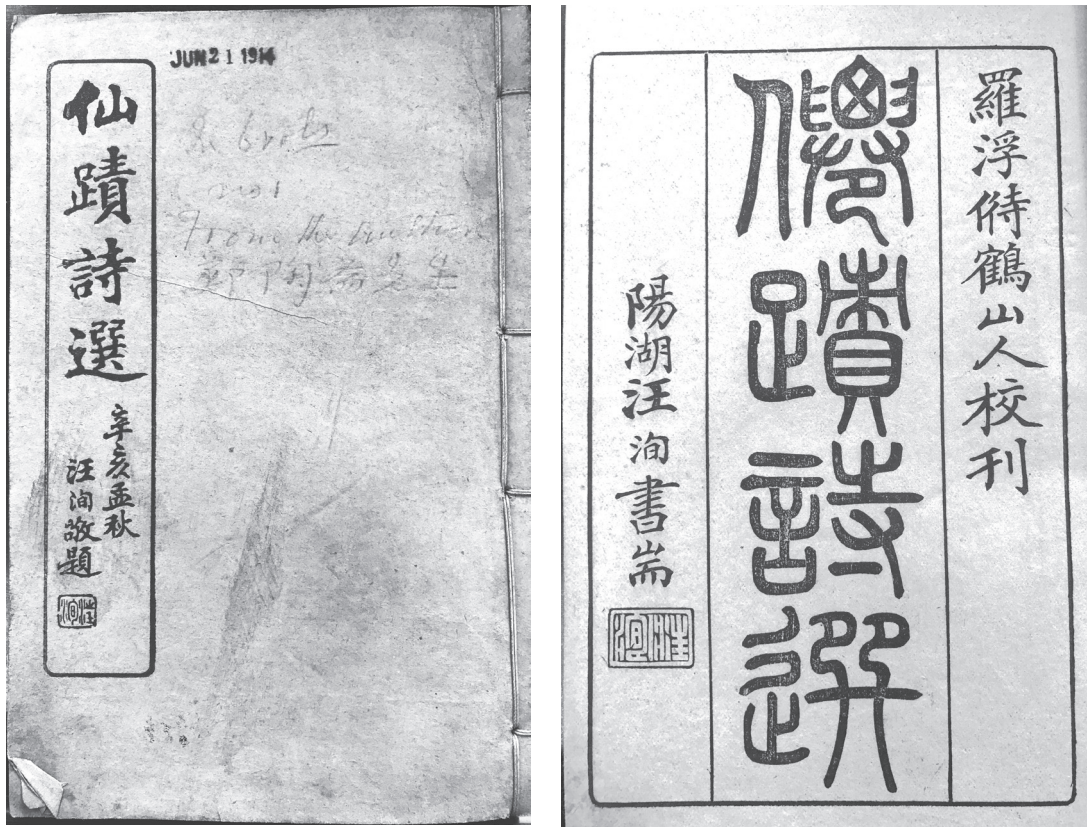 JUN 21 1914
仙蹟詩選
辛亥孟秋
汪洵敬題
汪洵
From the
先生
羅浮偫鶴山人校刊
僊蹟詩選
陽湖汪洵書耑
汪洵